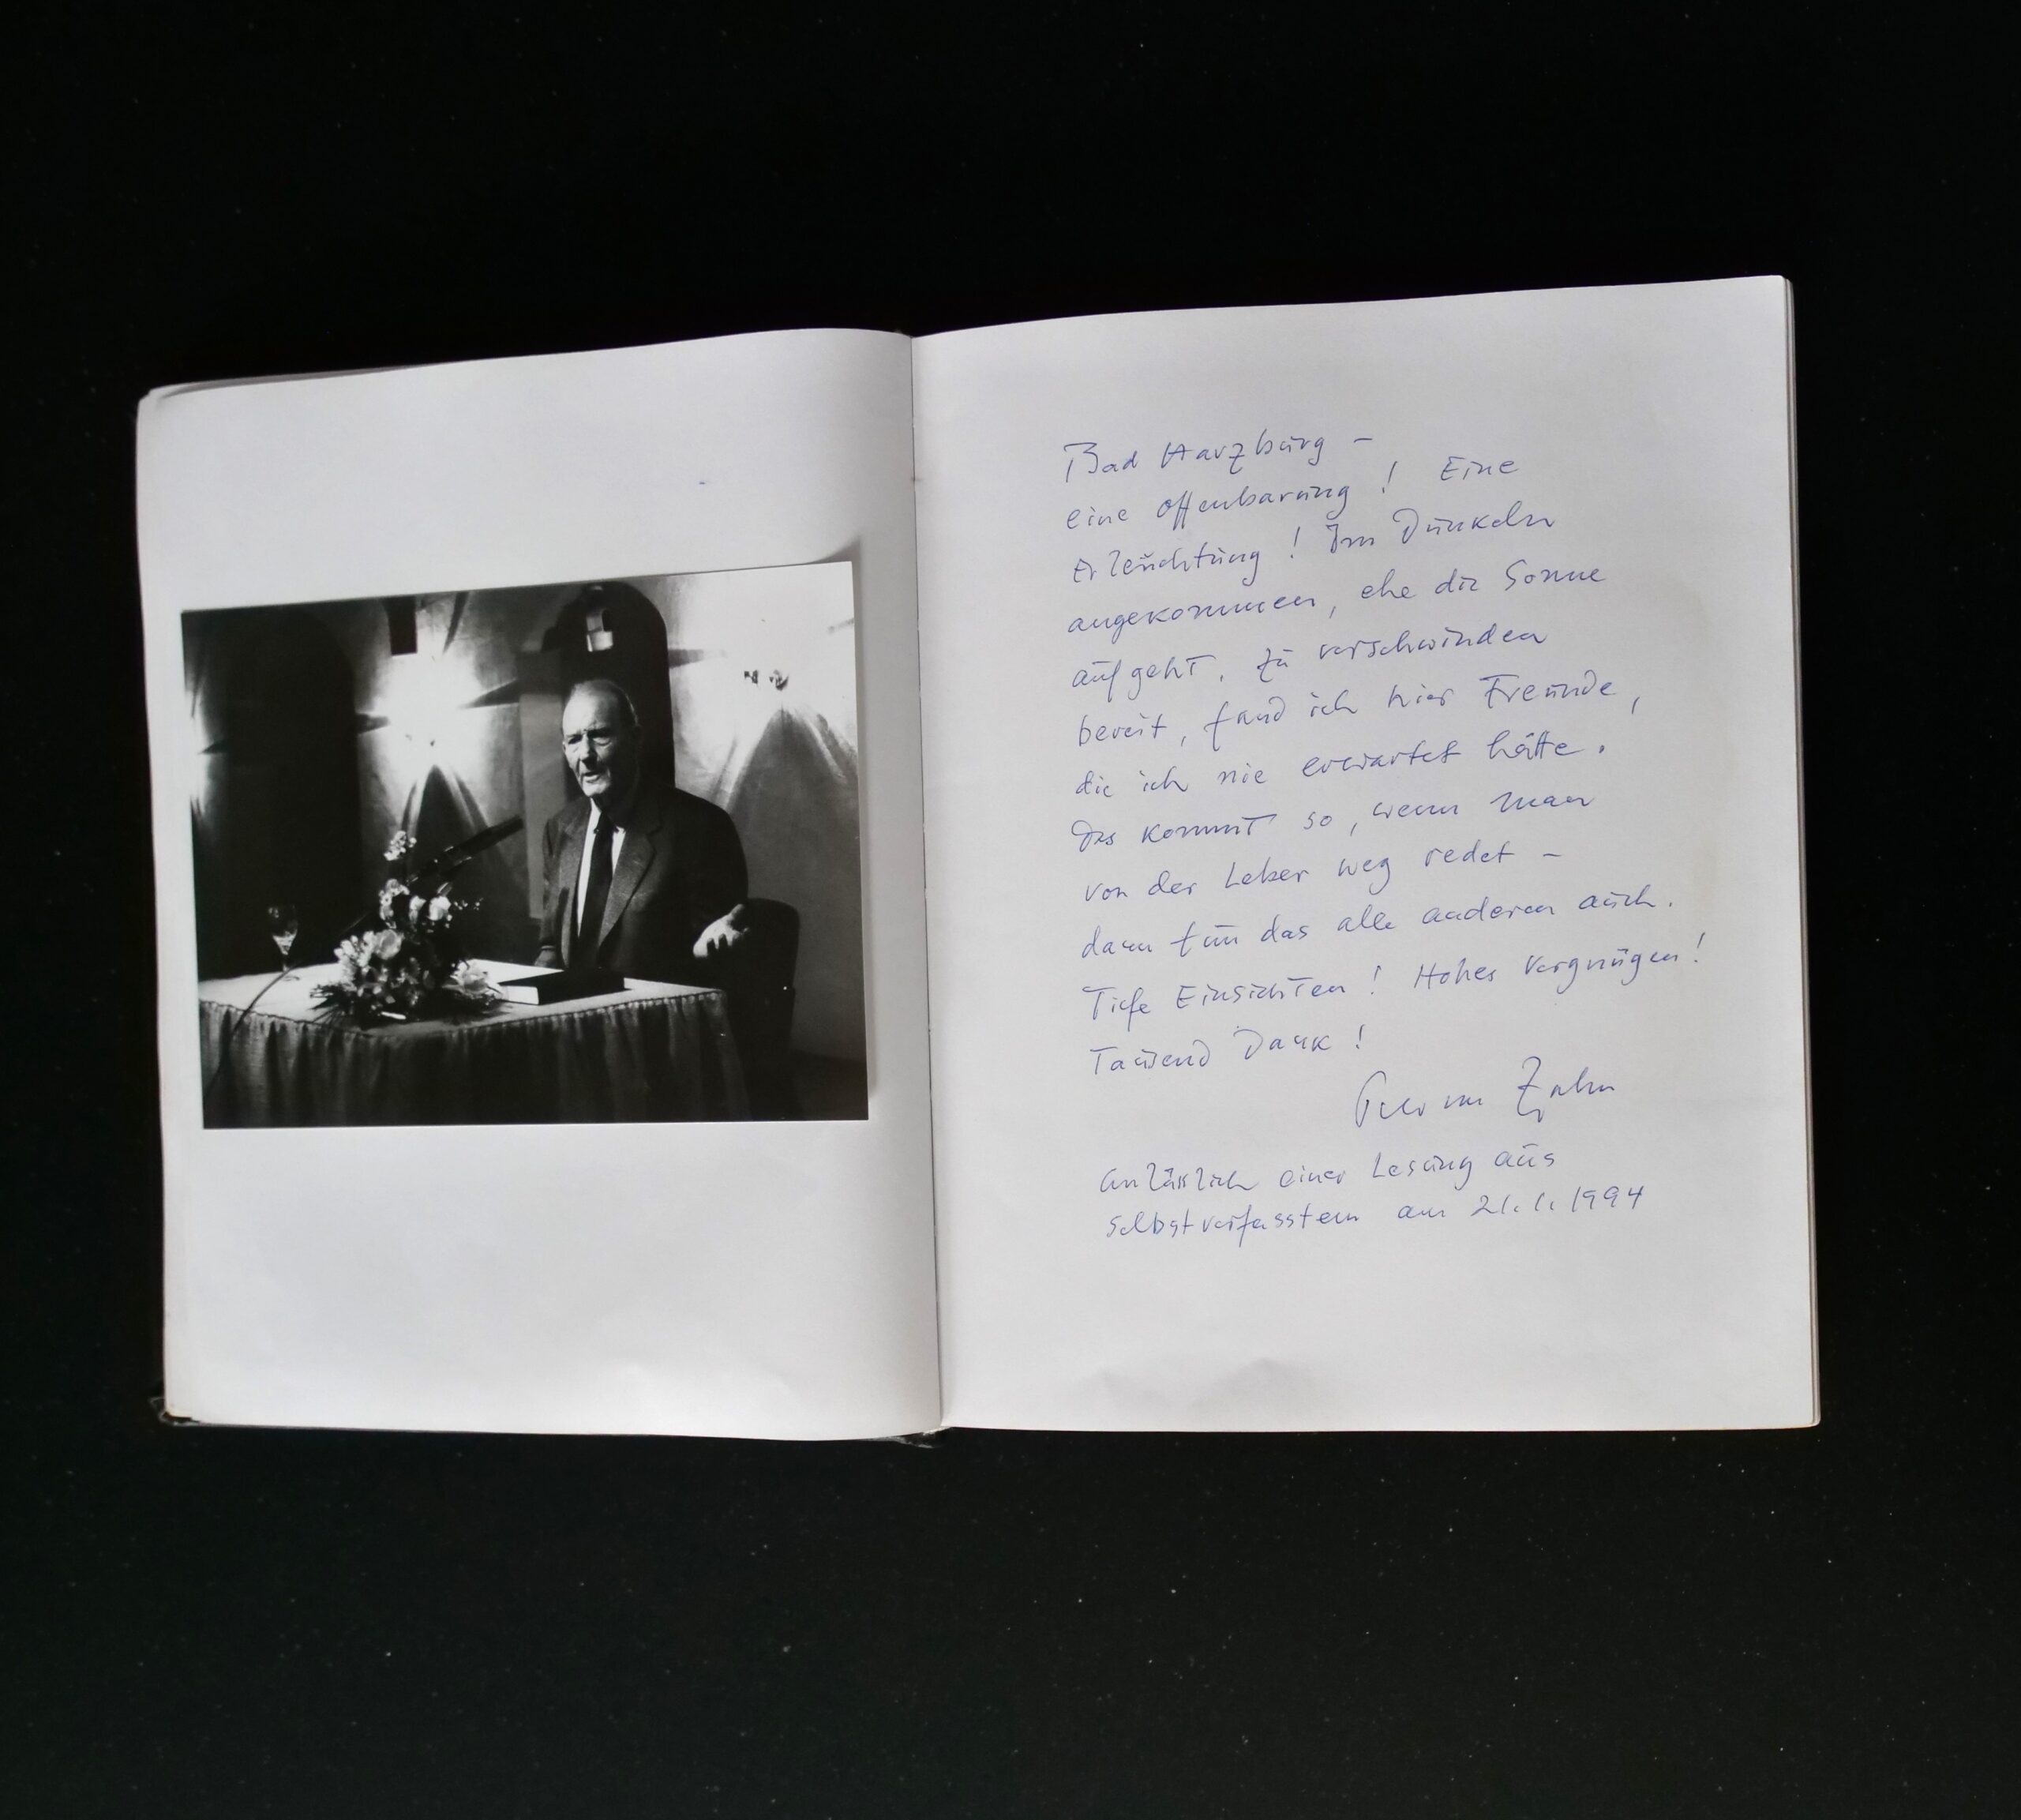 Bad Harzburg –
eine Offenbarung! Eine
Erleuchtung! Im Dunkeln
angekommen, ehe die Sonne
aufgeht, zu verschwinden
bereit, fand ich hier Freunde,
die ich nie erwartet hätte.
Das kommt so, wenn man
von der Leber weg redet –
dann tun das alle anderen auch.
Tiefe Einsichten! Hohes Vergnügen!
Tausend Dank!
Peter von Zahn
anlässlich einer Lesung aus
selbstverfasstem am 21.1.1994